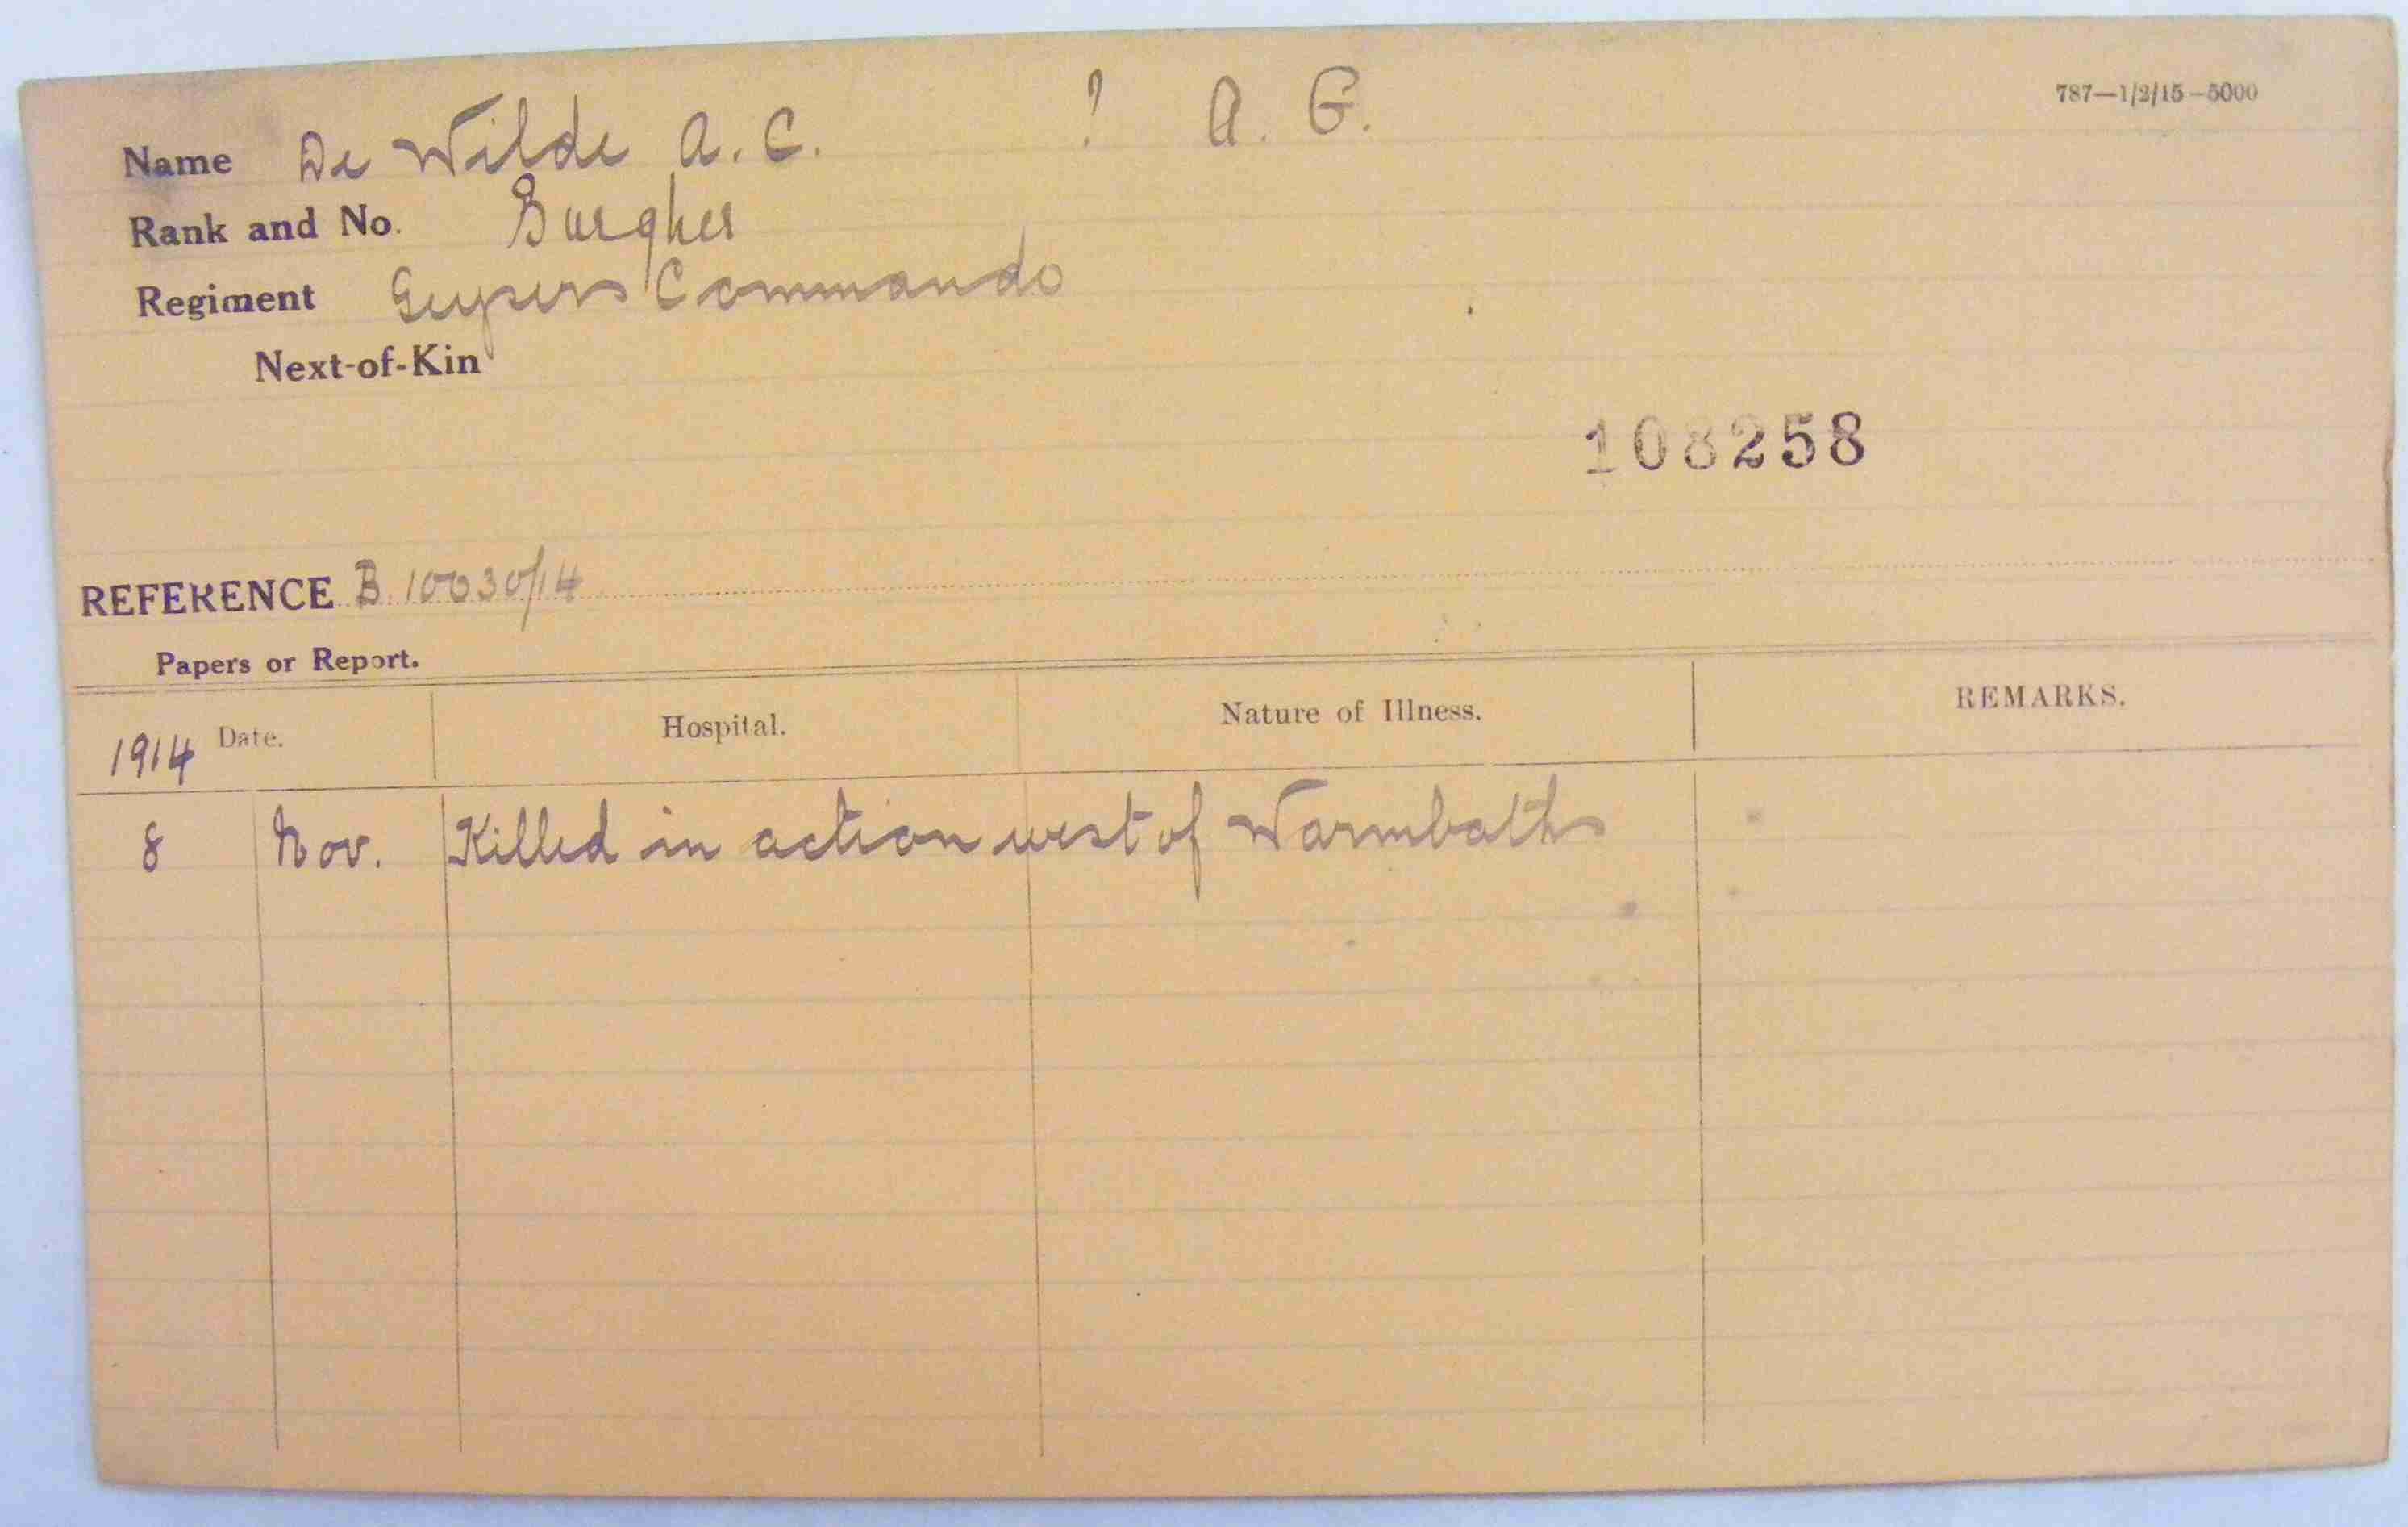 787—1/2/15—5000
Name De Wilde A. C. ? A. G.
Rank and No. Burgher
Regiment Geysers Commando
Next-of-Kin
108258
REFERENCE B. 10030/14
Papers or Report.
1914 Date. Hospital. Nature of Illness. REMARKS.
8 Nov. Killed in action west of Warmbaths